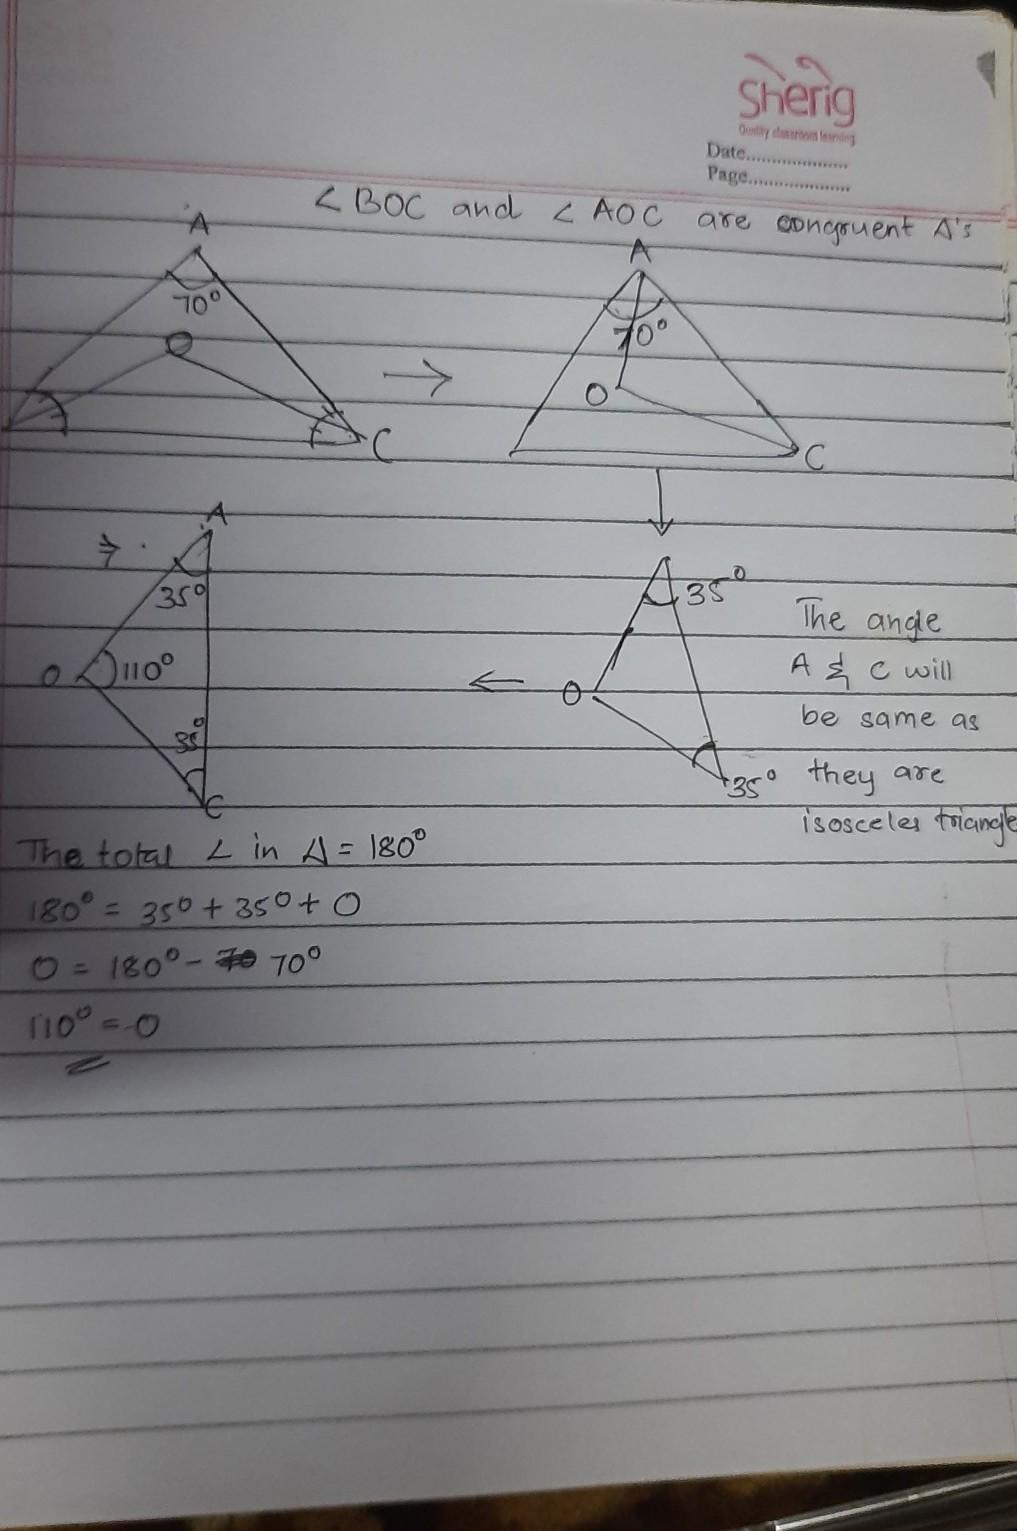 Sherig
Quality classroom learning
Date....................
Page....................
∠ BOC and ∠ AOC are congruent Δ's
A
70°
O
C
→
A
70°
O
C
↓
⇒
A
35°
O
110°
35°
C
←
35°
O
35°
The angle
A & C will
be same as
they are
isosceles triangle
The total ∠ in Δ = 180°
180° = 35° + 35° + O
O = 180° - 70°
110° = O